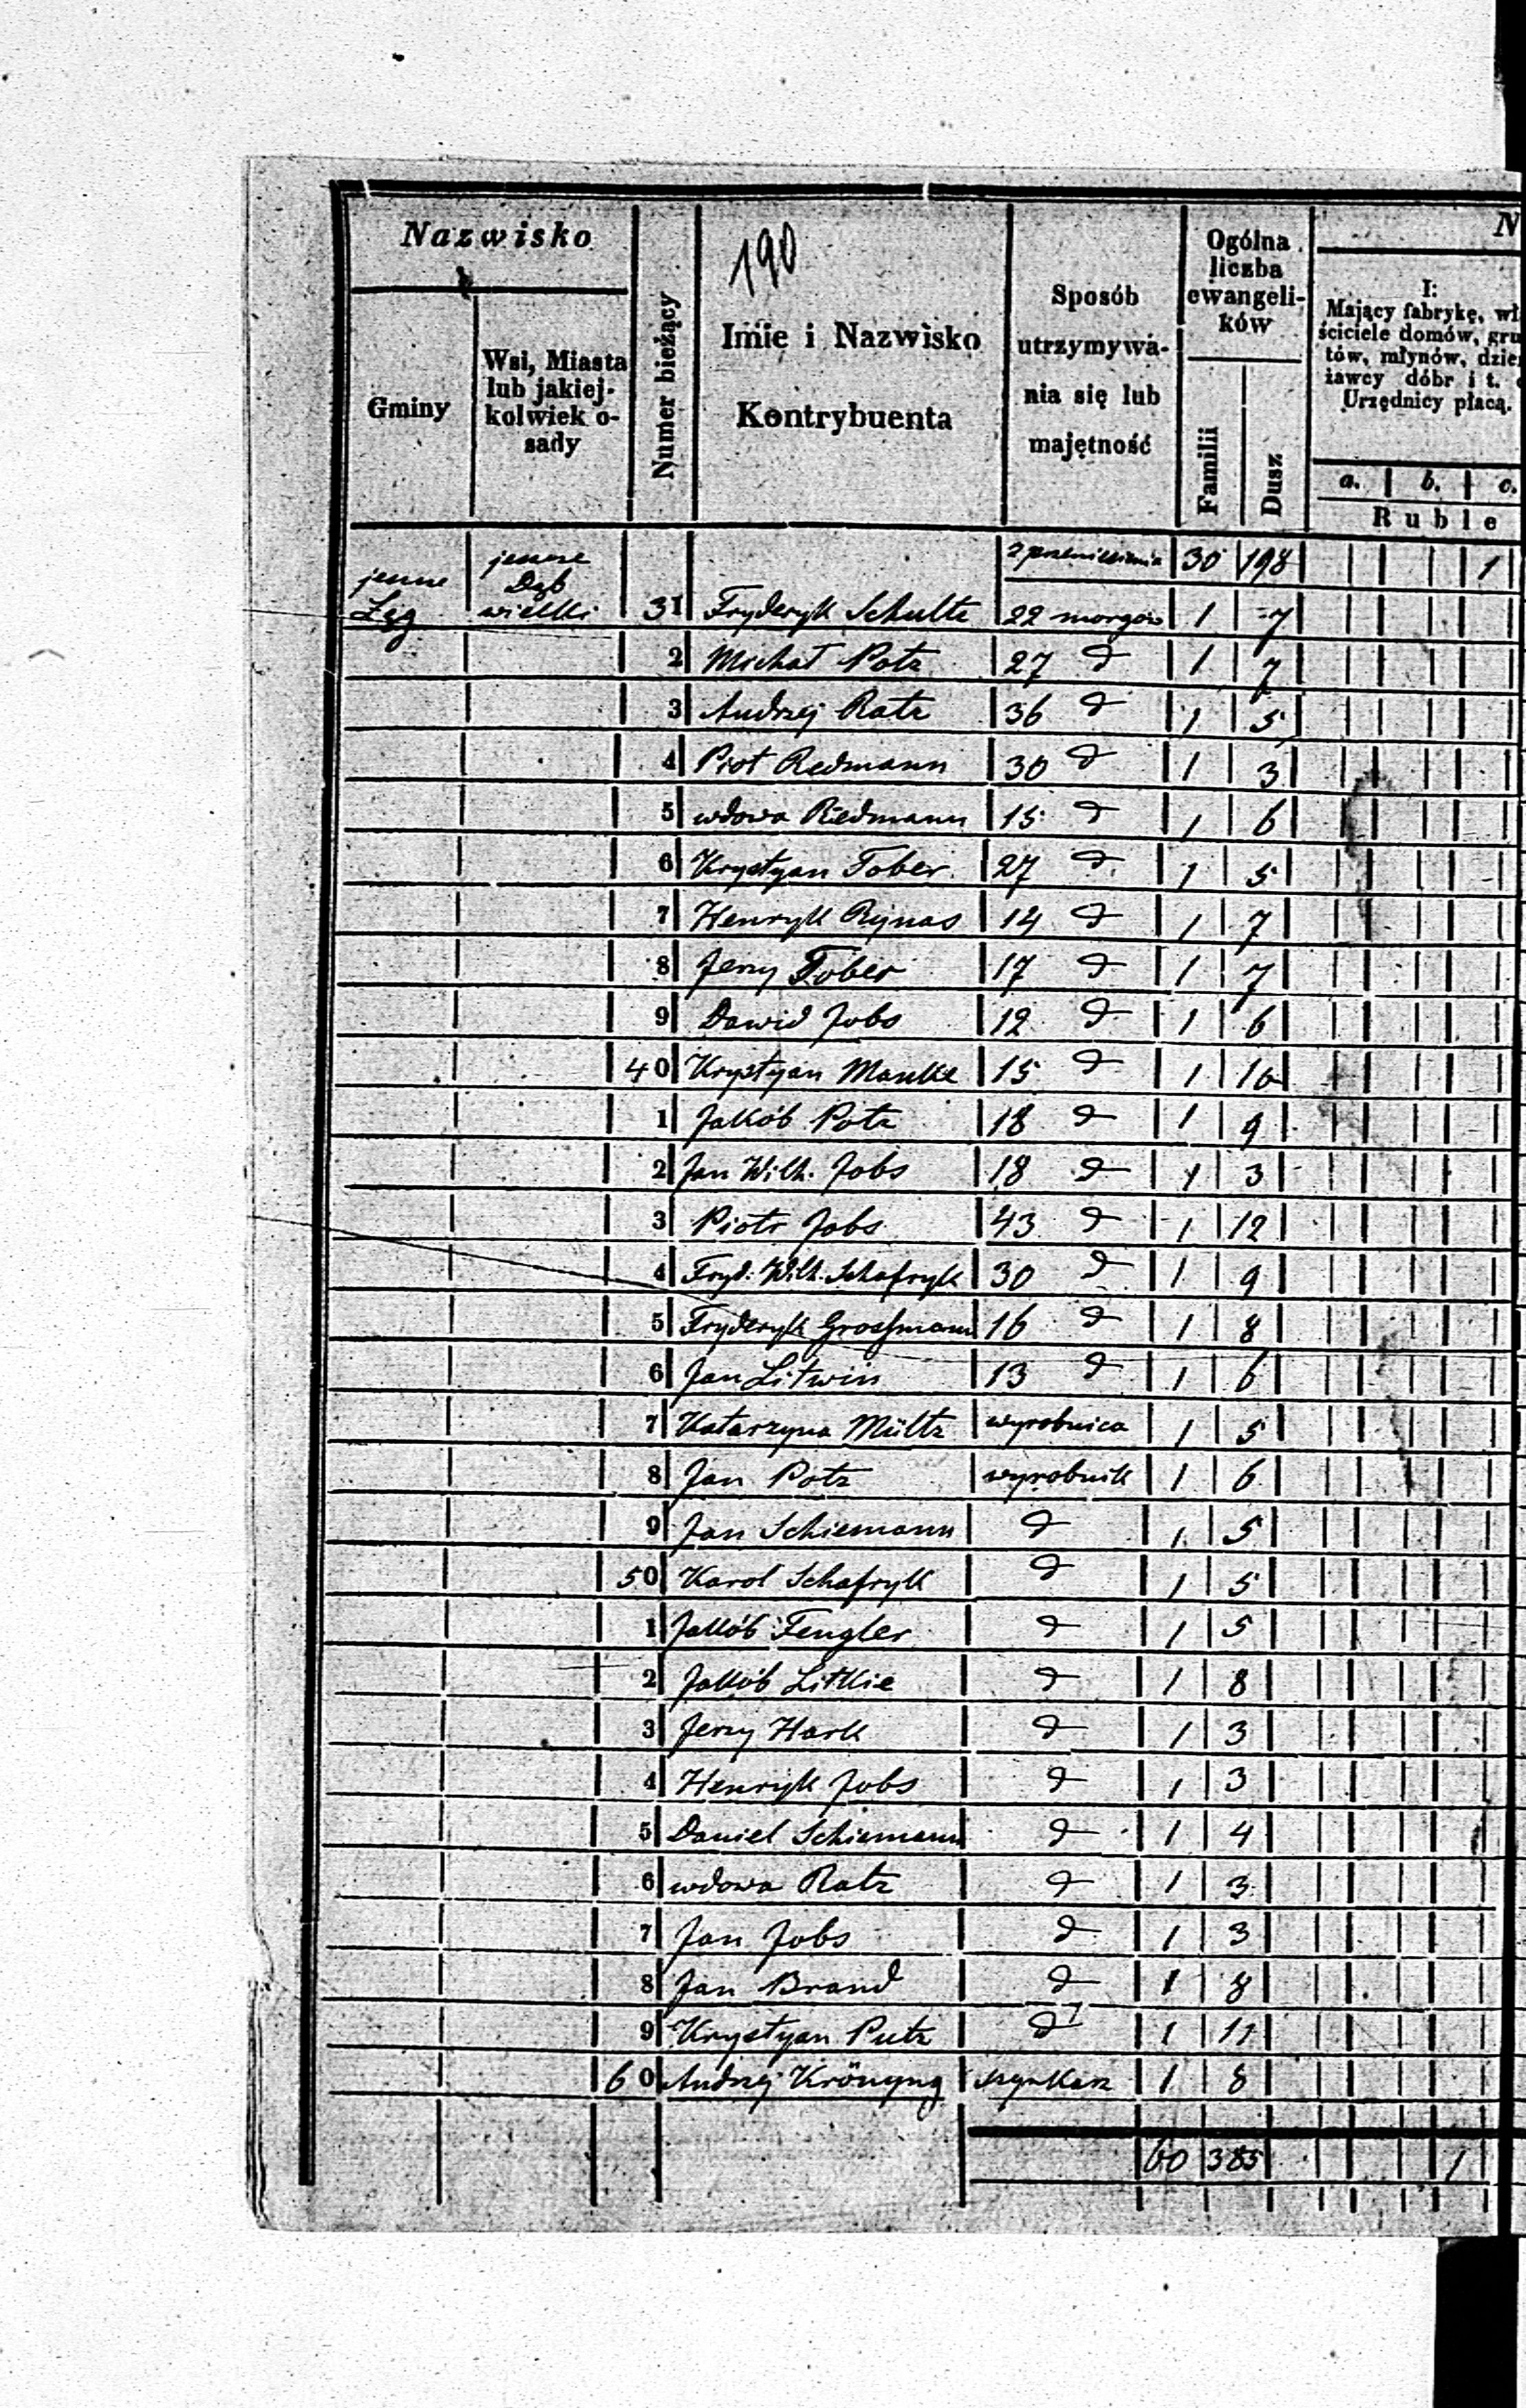 Nazwisko
Gminy
Wsi, Miasta
lub jakiej-
kolwiek o-
sady
Numer bieżący
190
Imie i Nazwisko
Kontrybuenta
Sposób
utrzymywa-
nia się lub
majętność
Ogólna
liczba
ewangeli-
ków
Familii
Dusz
N
I:
Mający fabrykę, wł
ściciele domów, gru
tów, młynów, dzie
żawcy dóbr i t.
Urzędnicy płacą.
a. b. c.
Ruble
z przeniesienia 30 198 1
jeszcze jeszcze
Dąb
Łęg wielki 31 Fryderyk Schultz 22 morgów 1 7
2 Michał Potz 27 d 1 7
3 Andrzej Ratz 36 d 1 5
4 Piot Redmann 30 d 1 3
5 wdowa Redmann 15 d 1 6
6 Krystyan Tober 27 d 1 5
7 Henryk Rynas 14 d 1 7
8 Jerzy Tober 17 d 1 7
9 Dawid Jobs 12 d 1 6
40 Krystyan Manke 15 d 1 10
1 Jakób Potz 18 d 1 9
2 Jan Wilh. Jobs 18 d 1 3
3 Piotr Jobs 43 d 1 12
4 Fryd. Wilh. Schafryk 30 d 1 9
5 Fryderyk Grossmann 16 d 1 8
6 Jan Litwin 13 d 1 6
7 Katarzyna Miltz wyrobnica 1 5
8 Jan Potz wyrobnik 1 6
9 Jan Schiemann d 1 5
50 Karol Schafryk d 1 5
1 Jakób Fengler d 1 5
2 Jakób Litkie d 1 8
3 Jerzy Hark d 1 3
4 Henryk Jobs d 1 3
5 Daniel Schiemann d 1 4
6 wdowa Ratz d 1 3
7 Jan Jobs d 1 3
8 Jan Brand d 1 8
9 Krystyan Putz d 1 11
60 Andrzej Krönyng szynkarz 1 8
60 385 1